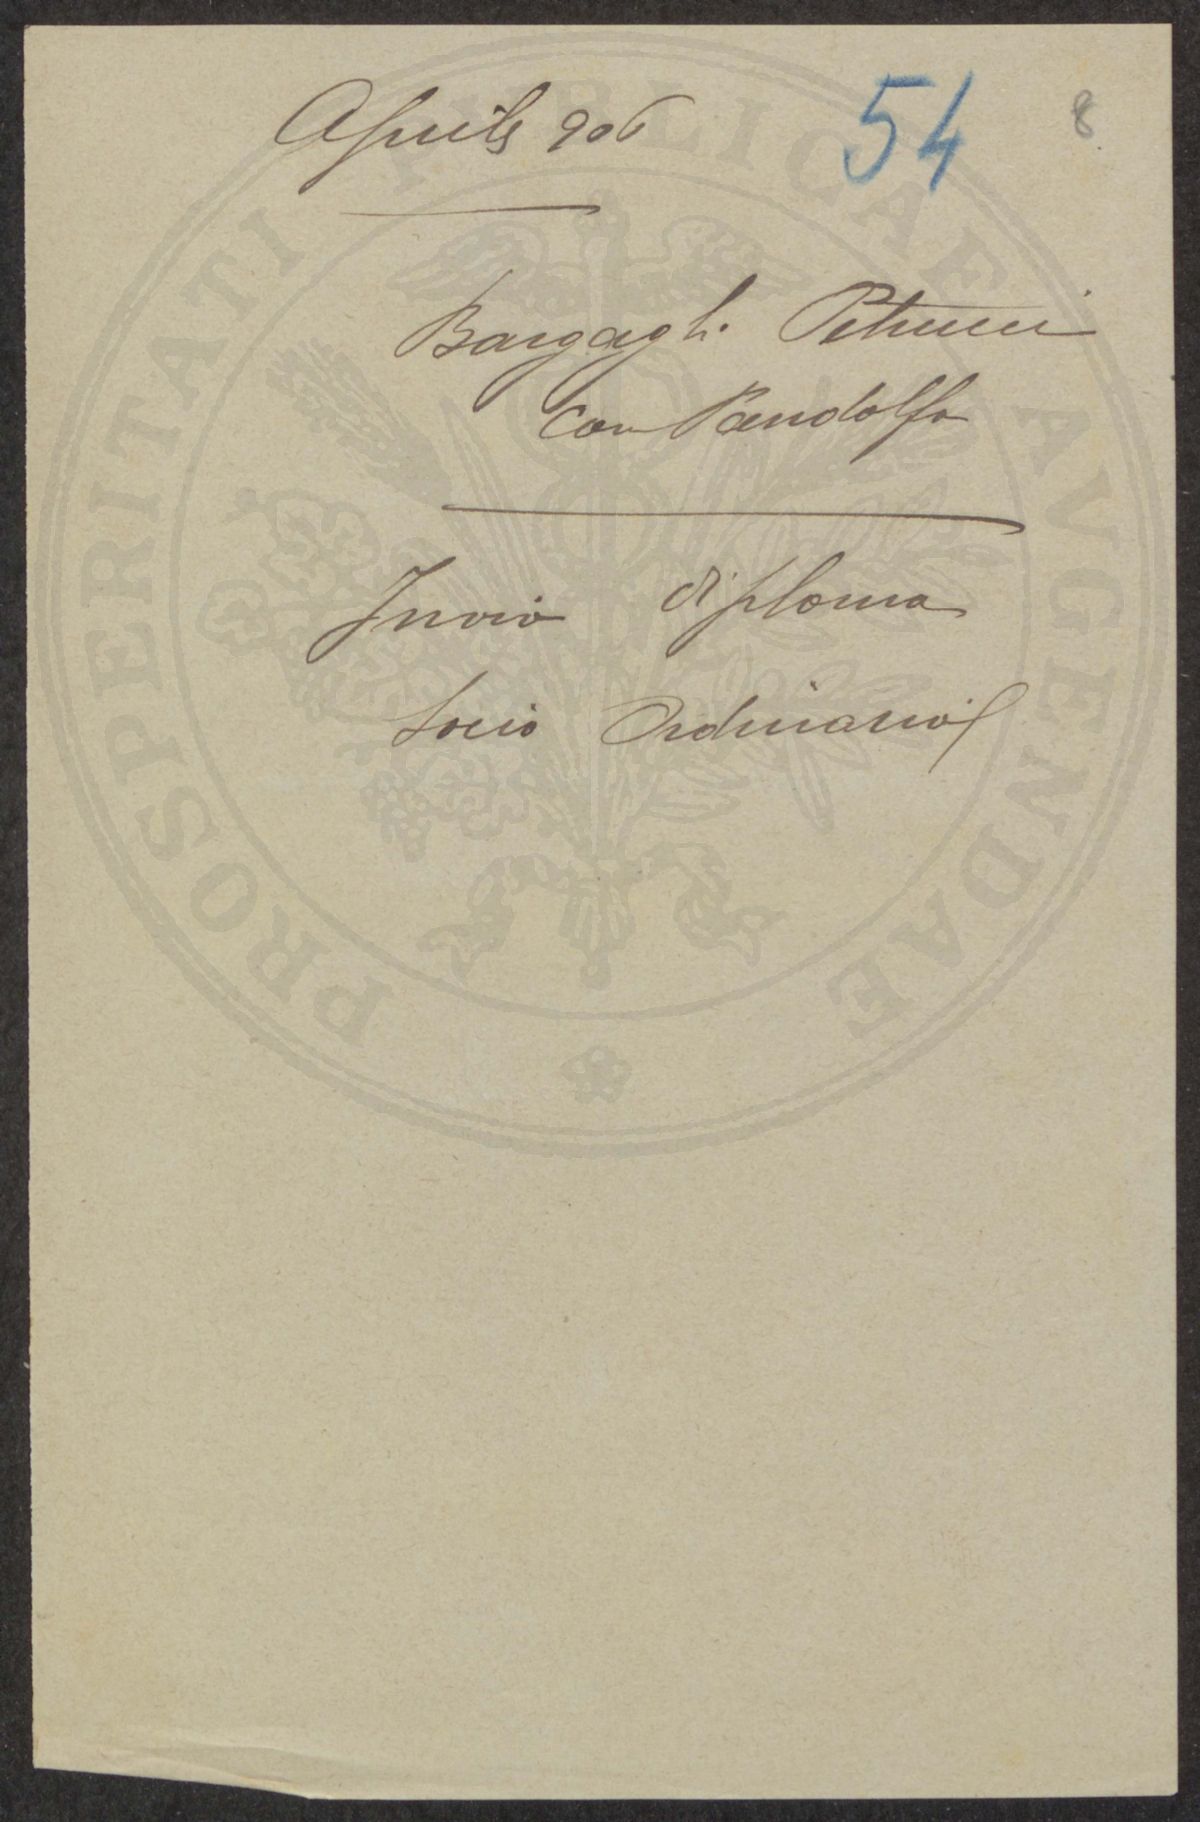 Aprile 906
54
8
Bargagli Petrucci
Cav Pandolfo
Invio diploma
Socio Ordinario
PROSPERITATI PUBLICAE AVGENDAE